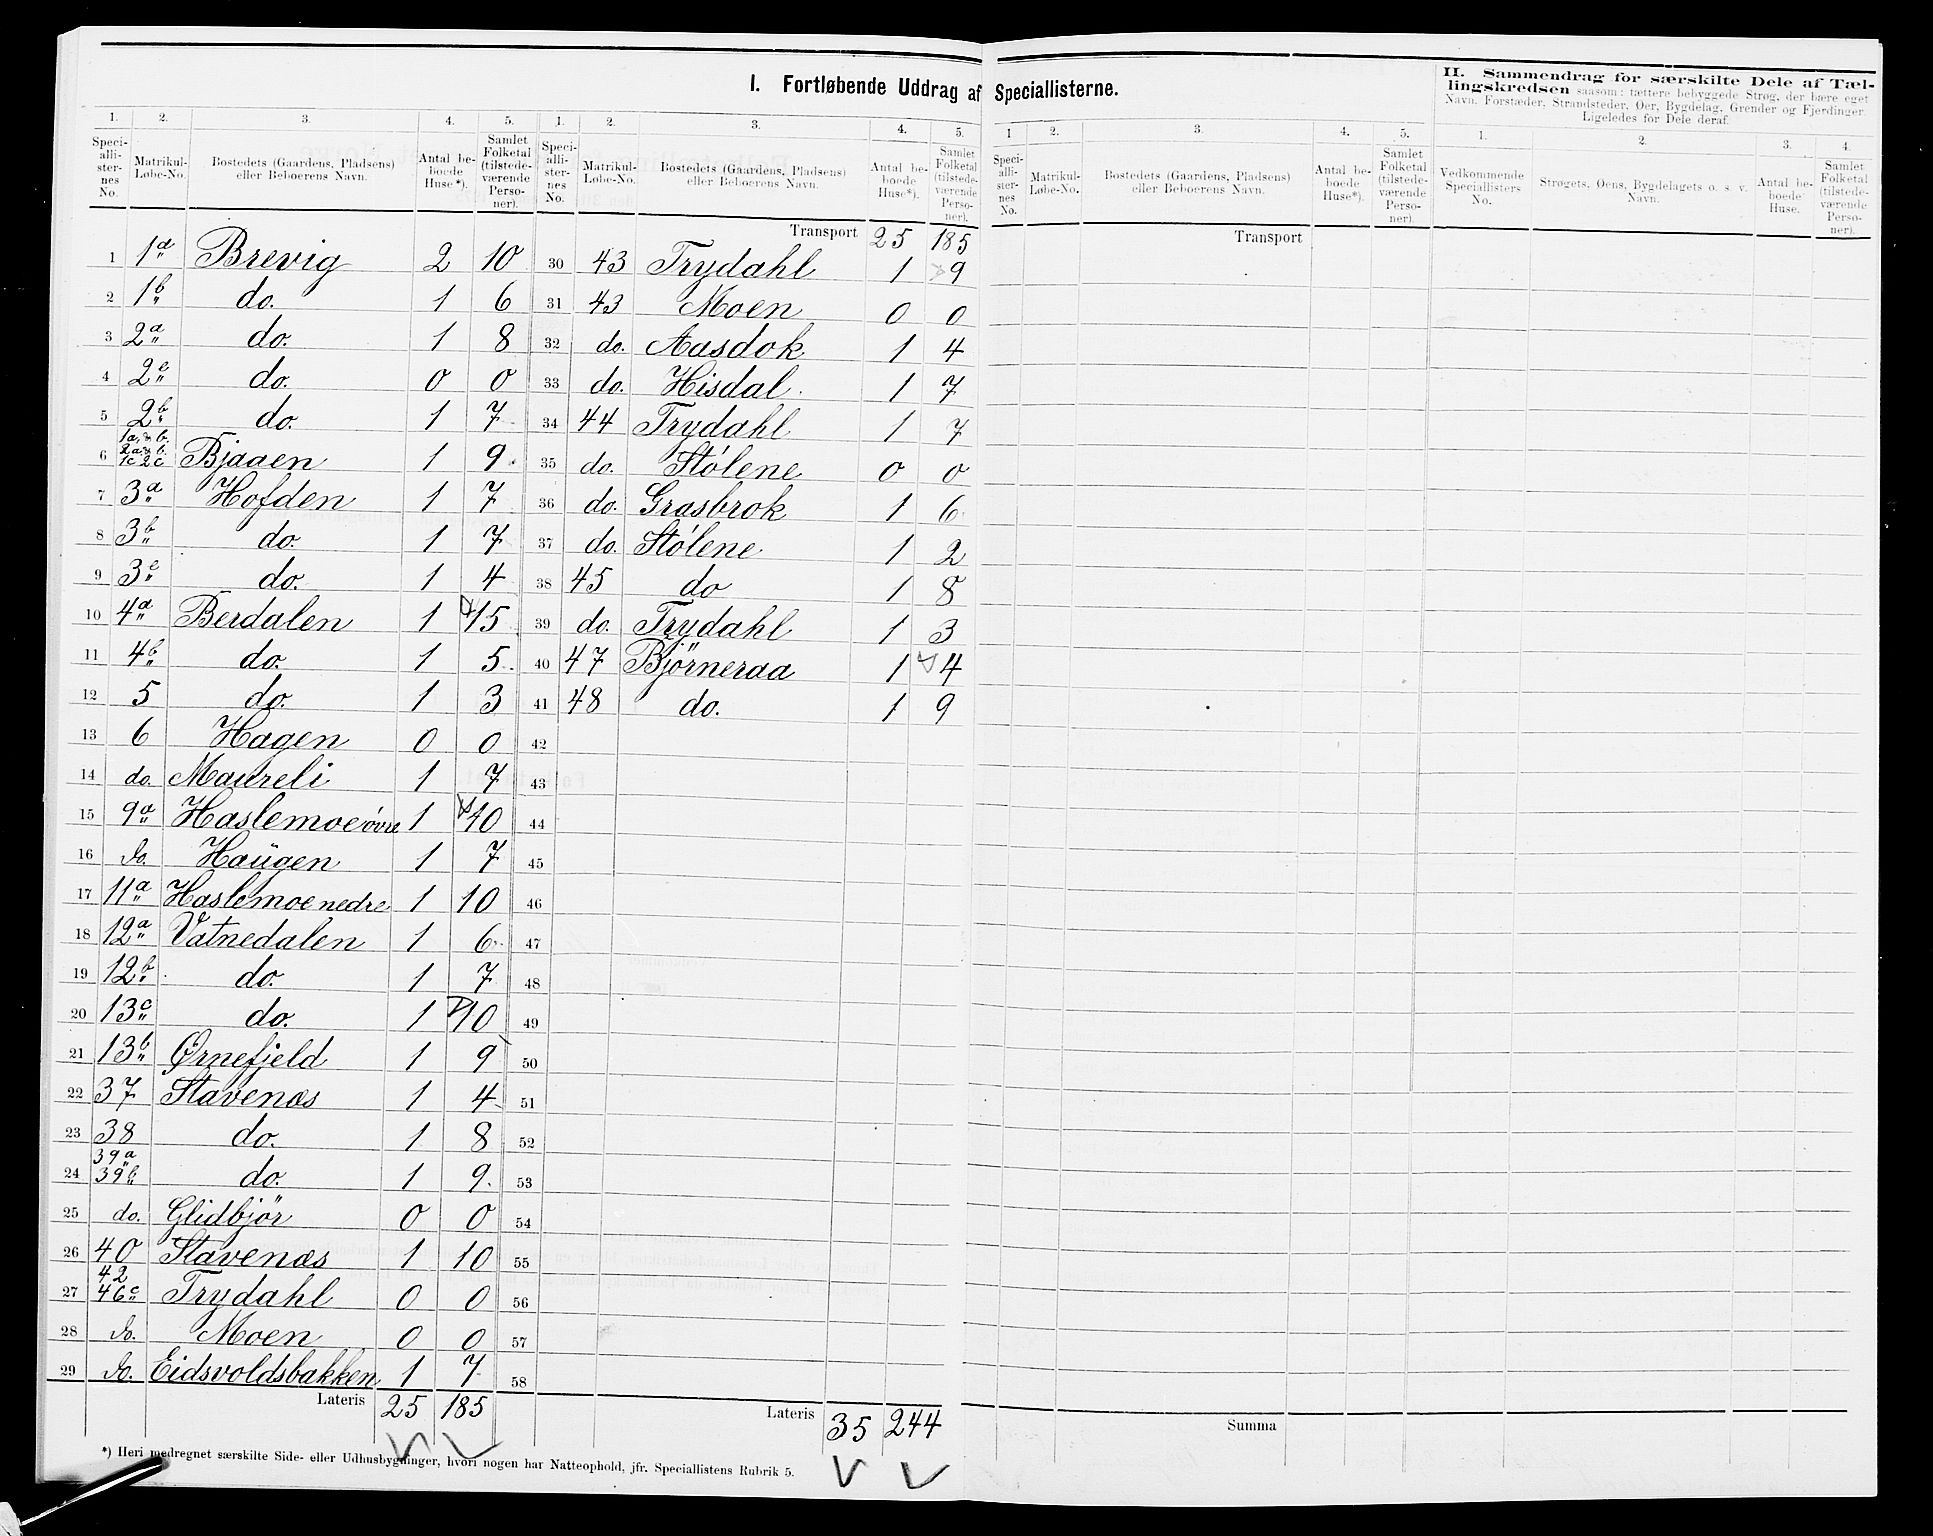 I. Fortløbende Uddrag af Speciallisterne.
1. 2. 3. 4. 5.
Speciallisternes No. Matrikul-Løbe-No. Bostedets (Gaardens, Pladsens) eller Beboerens Navn. Antal beboede Huse*). Samlet Folketal (tilstedeværende Personer).
1 1a Brevig 2 10
2 1b do. 1 6
3 2a do. 1 8
4 2c do. 0 0
5 2b do. 1 7
6 1a, & b. 2a & b. 1c 2c Bjaaen 1 9
7 3a Hofden 1 7
8 3b do. 1 7
9 3c do. 1 4
10 4a Berdalen 1 15
11 4b do. 1 5
12 5 do. 1 3
13 6 Hagen 0 0
14 do. Maureli 1 7
15 9a Haslemoe øvre 1 10
16 do. Haugen 1 7
17 11a Haslemoe nedre 1 10
18 12a Vatnedalen 1 6
19 12b do. 1 7
20 13c do. 1 10
21 13b Ørnefjeld 1 9
22 37 Stavenæs 1 4
23 38 do. 1 8
24 39a 39b do. 1 9
25 do. Glidbjör 0 0
26 40 Stavenæs 1 10
27 42 46c Trydahl 0 0
28 do. Moen 0 0
29 do. Eidsvoldsbakken 1 7
Lateris 25 185
1. 2. 3. 4. 5.
Speciallisternes No. Matrikul-Løbe-No. Bostedets (Gaardens, Pladsens) eller Beboerens Navn. Antal beboede Huse*). Samlet Folketal (tilstedeværende Personer).
Transport 25 185
30 43 Trydahl 1 9
31 43 Moen 0 0
32 do. Aasdok 1 4
33 do. Hisdal 1 7
34 44 Trydahl 1 7
35 do. Stólene 0 0
36 do. Grasbrok 1 6
37 do. Stólene 1 2
38 45 do 1 8
39 do. Trydahl 1 3
40 47 Björneraa 1 4
41 48 do. 1 9
42
43
44
45
46
47
48
49
50
51
52
53
54
55
56
57
58
Lateris 35 244
*) Heri medregnet særskilte Side- eller Udhusbygninger, hvori nogen har Natteophold, jfr. Speciallistens Rubrik 5.
1 2. 3. 4. 5.
Speciallisternes No. Matrikul-Løbe-No. Bostedets (Gaardens, Pladsens) eller Beboerens Navn. Antal beboede Huse*). Samlet Folketal (tilstedeværende Personer).
Transport
Summa
II. Sammendrag for særskilte Dele af Tællingskredsen saasom: tættere bebyggede Strøg, der bære eget
Navn, Forstæder, Strandsteder, Øer, Bygdelag, Grender og Fjerdinger.
Ligeledes for Dele deraf.
1. 2. 3. 4.
Vedkommende Speciallisters No. Strøgets, Øens, Bygdelagets o. s. v. Navn. Antal beboede Huse. Samlet Folketal (tilstedeværende Personer).